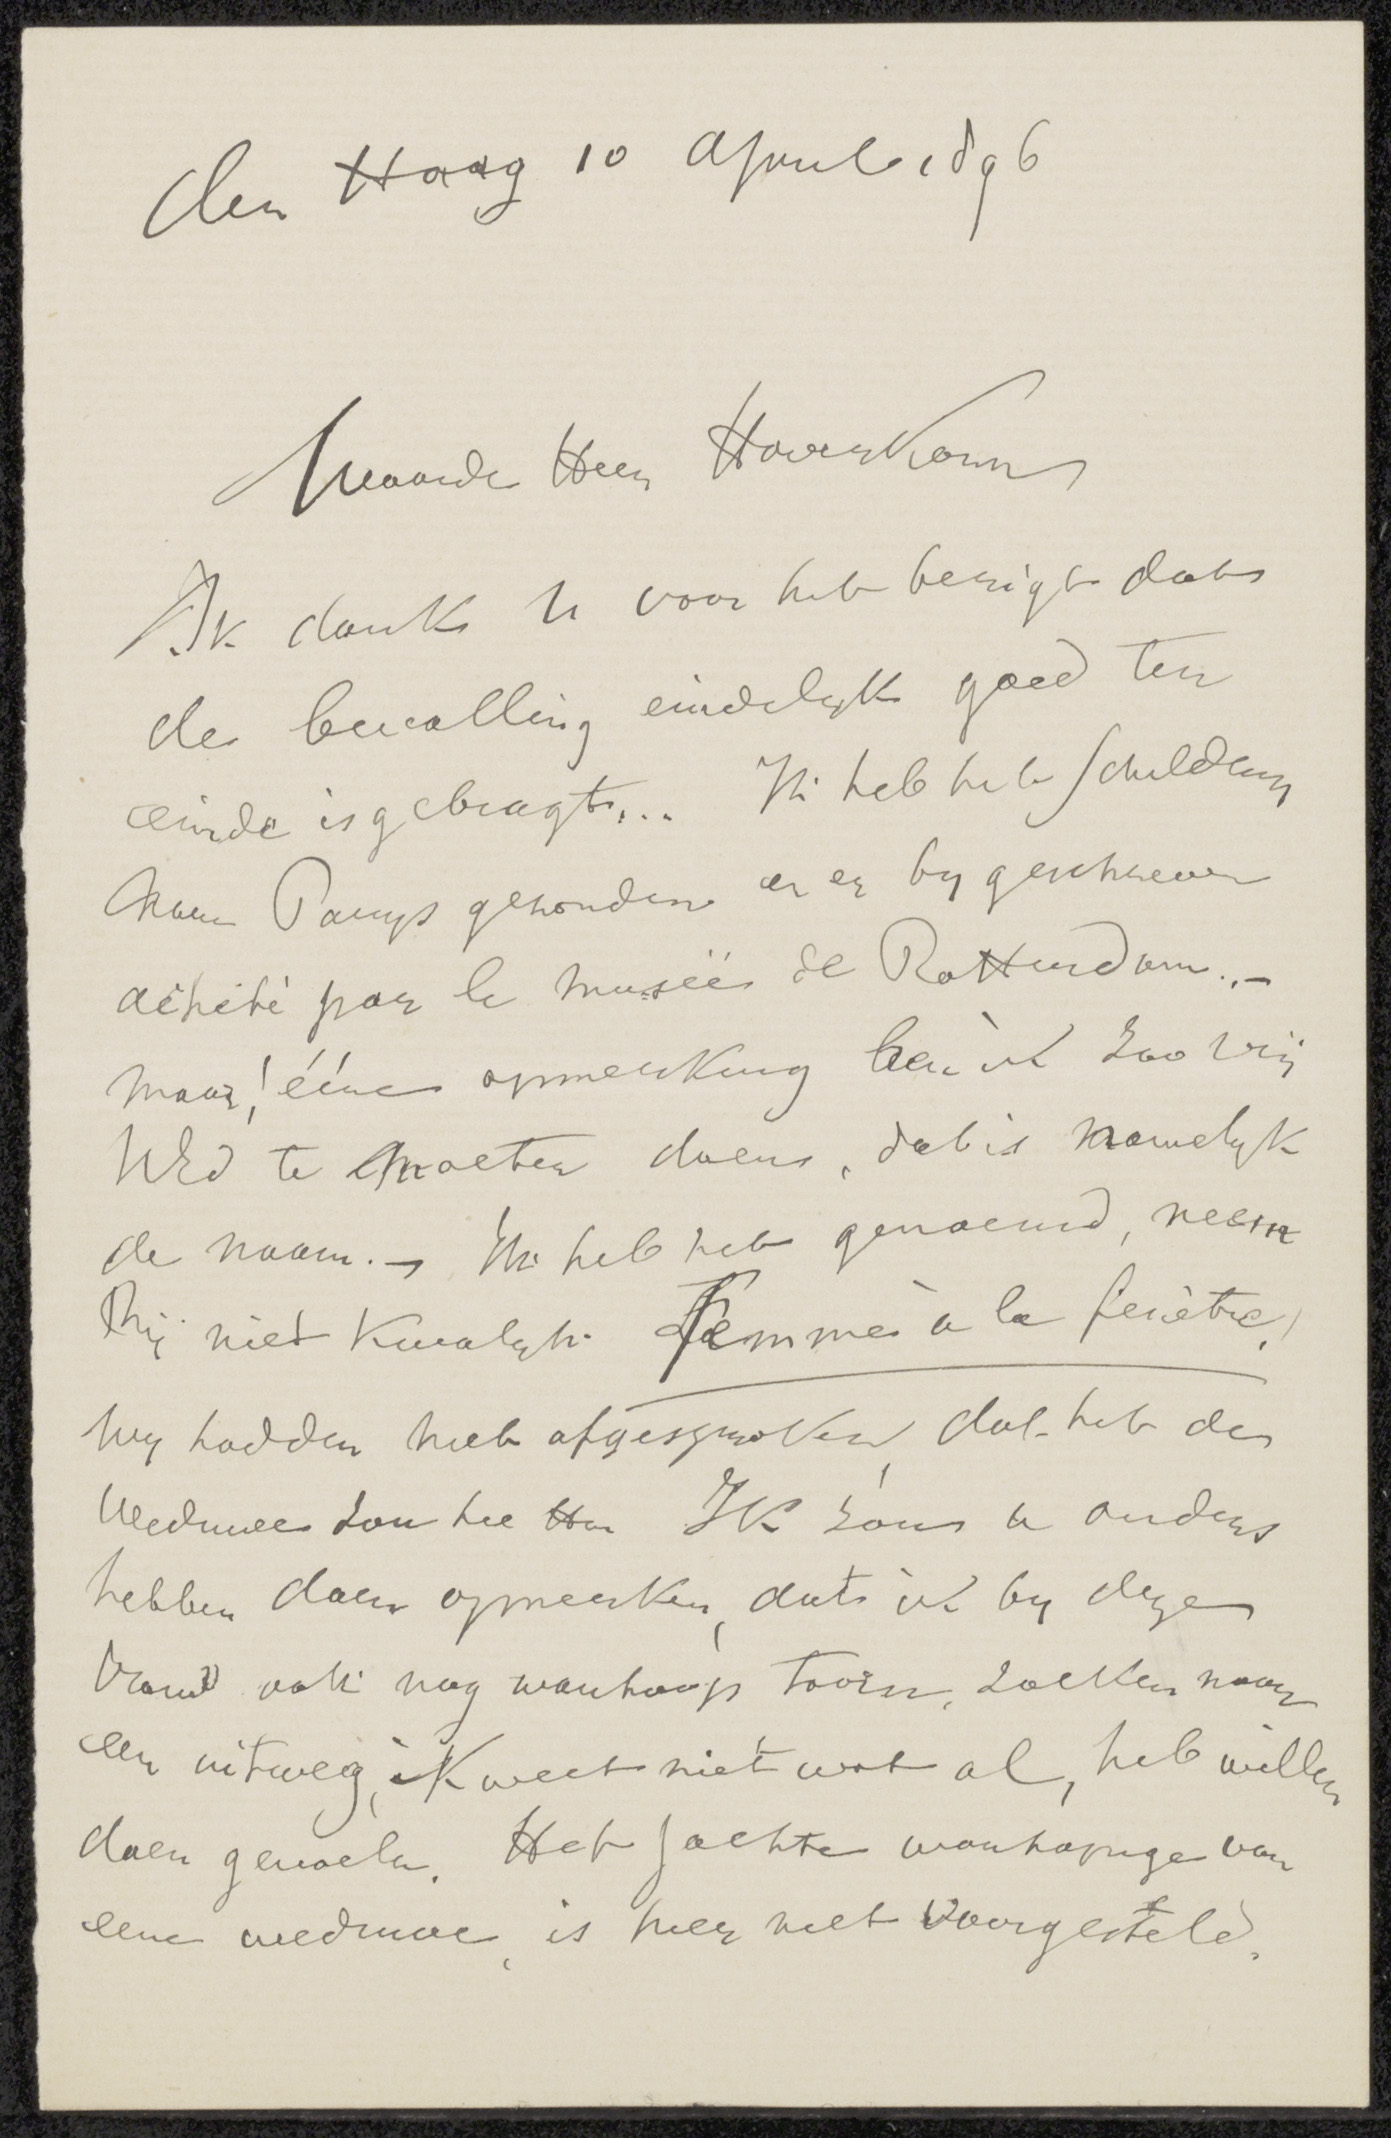 den Haag 10 April 1896
Waarde Heer Haverkorn
Ik dank U voor het berigt dat
de bevalling eindelyk goed ten
einde is gebragt... Ik heb het schildery
naar Parys gezonden en er by geschreven
achété par le musée de Rotterdam. –
maar! ééne opmerking ben ik zoo vrij
UEd te moeten doen, dat is namelyk
de naam. – Ik heb het genoemd, neem
mij niet kwalyk Femme à la fenêtre!
wy hadden niet afgesproken, dat het de
Weduwe zou hee Ik zou u anders
hebben doen opmerken, dat ik by deze
vrouw ook nog wanhoop, toorn, zoeken naar
een uitweg, ik weet niet wat al, heb willen
doen gevoelen. Het zachte wanhopige van
eene weduwe, is hier niet voorgesteld.